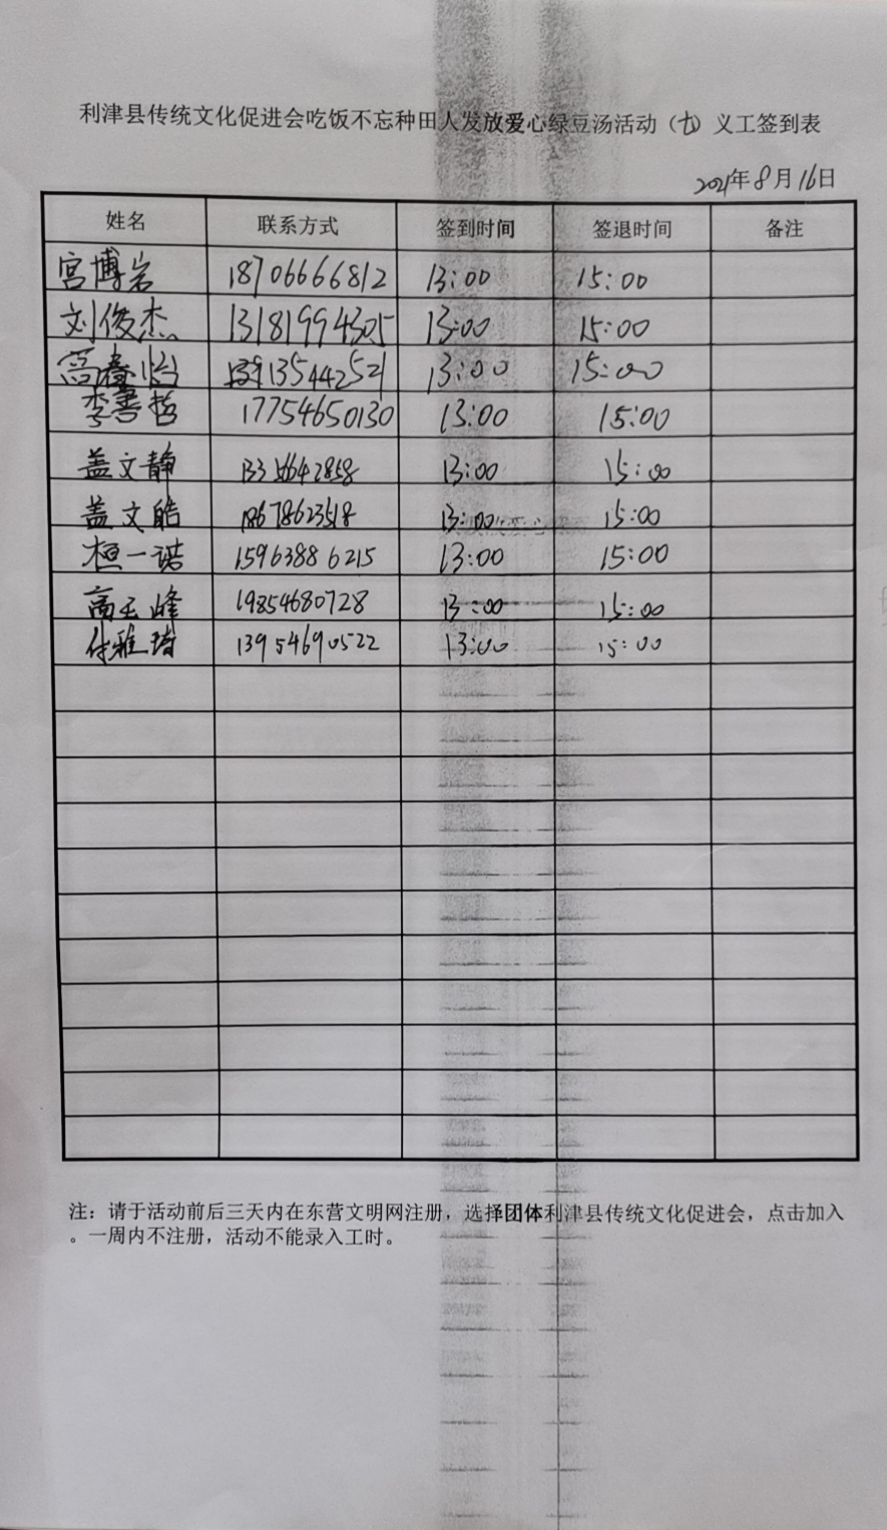 利津县传统文化促进会吃饭不忘种田人发放爱心绿豆汤活动（七）义工签到表
2021年8月16日
姓名 联系方式 签到时间 签退时间 备注
宫博岩 18706666812 13:00 15:00
刘俊杰 13181994305 13:00 15:00
13:00 15:00
李書哲 17754650130 13:00 15:00
盖文静 13:00 15:00
盖文皓 18678623518 13:00 15:00
桓一诺 15963886215 13:00 15:00
高玉峰 19854680728 13:00 15:00
付雅琦 13954690522 13:00 15:00
注：请于活动前后三天内在东营文明网注册，选择团体利津县传统文化促进会，点击加入
。一周内不注册，活动不能录入工时。